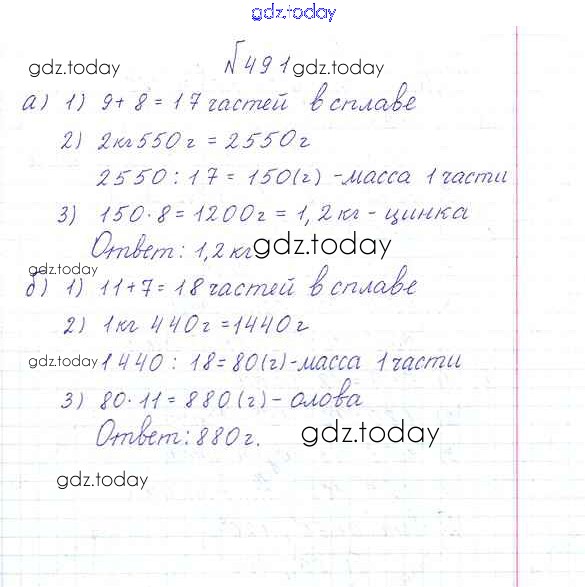 gdz.today
gdz.today №491 gdz.today
а) 1) 9+8=17 частей в сплаве
2) 2кг550г = 2550г
2550:17=150(г) -масса 1 части
3) 150·8=1200г=1,2кг-цинка
Ответ: 1,2кг gdz.today
gdz.today
б) 1) 11+7=18 частей в сплаве
2) 1кг 440г=1440г
gdz.today 1440:18=80(г)-масса 1 части
3) 80·11=880(г)-олова
Ответ:880г. gdz.today
gdz.today